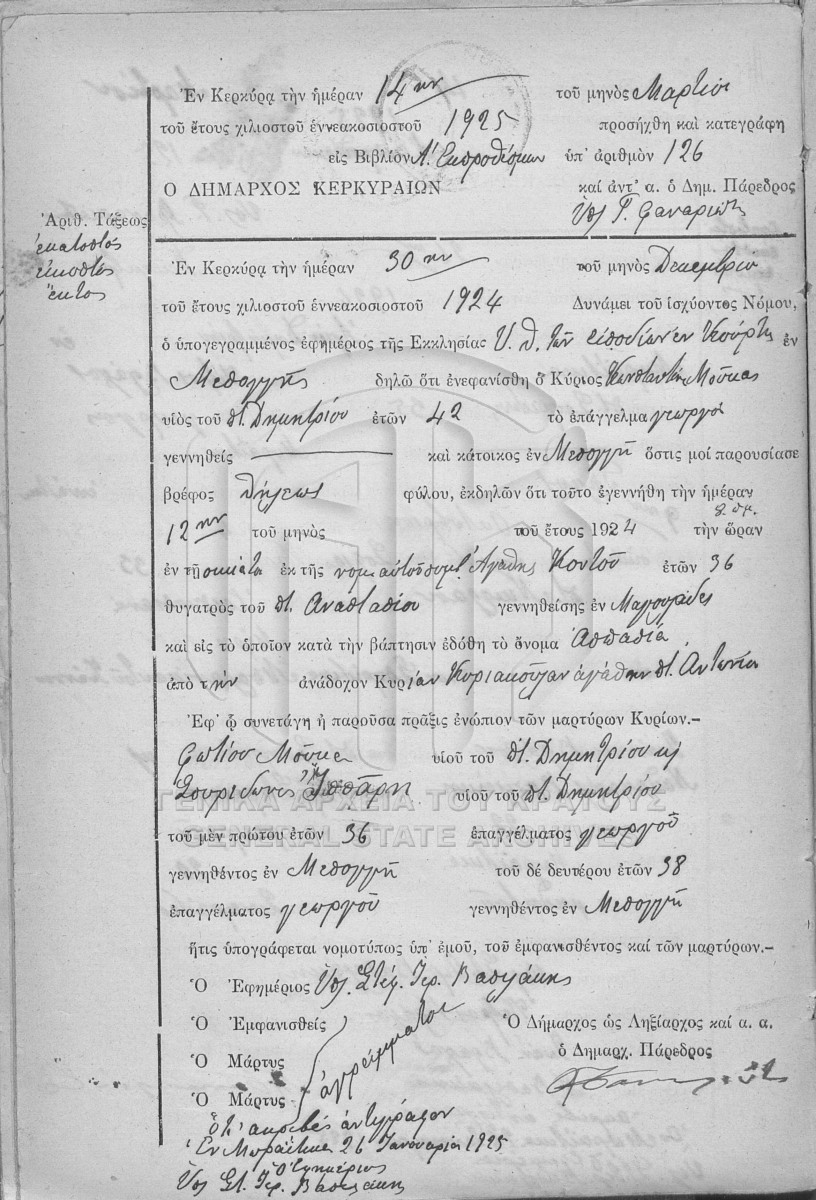 Ἐν Κερκύρᾳ τὴν ἡμέραν 14ην τοῦ μηνὸς Μαρτίου
τοῦ ἔτους χιλιοστοῦ ἐννεακοσιοστοῦ 1925 προσήχθη καὶ κατεγράφη
εἰς Βιβλίον Λ. Ἐκπροθέσμων ὑπ' ἀριθμὸν 126
Ο ΔΗΜΑΡΧΟΣ ΚΕΡΚΥΡΑΙΩΝ καί ἀντ' α. ὁ Δημ. Πάρεδρος
Ἀριθ. Τάξεως
ἑκατοστὸς
εἰκοστὸς
ἕκτος
Ἐν Κερκύρᾳ τὴν ἡμέραν 30ην τοῦ μηνὸς Δεκεμβρίου
τοῦ ἔτους χιλιοστοῦ ἐννεακοσιοστοῦ 1924 Δυνάμει τοῦ ἰσχύοντος Νόμου,
ὁ ὑπογεγραμμένος ἐφημέριος τῆς Ἐκκλησίας Υ. Θ. τῶν Εἰσοδίων ἐν
Μεσογγῆς δηλῶ ὅτι ἐνεφανίσθη ὁ Κύριος Κωνσταντῖνος Μούκας
υἱὸς τοῦ ποτ. Δημητρίου ἐτῶν 42 τὸ ἐπάγγελμα γεωργὸς
γεννηθεὶς καὶ κάτοικος ἐν Μεσογγῇ ὅστις μοί παρουσίασε
βρέφος θήλεως φύλου, ἐκδηλῶν ὅτι τοῦτο ἐγεννήθη τὴν ἡμέραν
12ην τοῦ μηνὸς τοῦ ἔτους 1924 τὴν ὥραν
ἐν τῇ οἰκίᾳ τα ἐκ τῆς νομ. αὐτοῦ συμβ. Ἀγάθης Κοντοῦ ἐτῶν 36
θυγατρὸς τοῦ ποτ. Ἀναστασίου γεννηθείσης ἐν Μαγουλάδες
καὶ εἰς τὸ ὁποῖον κατὰ τὴν βάπτησιν ἐδόθη τὸ ὄνομα Ἀσπασία
ἀπὸ τὴν ἀνάδοχον Κυρίαν Κυριακούλαν ἀγάθην ποτ. Ἀντωνίου
Ἐφ' ᾧ συνετάγη ἡ παροῦσα πρᾶξις ἐνώπιον τῶν μαρτύρων Κυρίων.—
Φωτίου Μούκα υἱοῦ τοῦ ποτ. Δημητρίου κ
Σπυρίδωνος υἱοῦ τοῦ ποτ. Δημητρίου
ΓΕΝΙΚΑ ΑΡΧΕΙΑ ΤΟΥ ΚΡΑΤΟΥΣ
GENERAL STATE ARCHIVES
τοῦ μὲν πρώτου ἐτῶν 36 ἐπαγγέλματος γεωργοῦ
γεννηθέντος ἐν Μεσογγῇ τοῦ δέ δευτέρου ἐτῶν 38
ἐπαγγέλματος γεωργοῦ γεννηθέντος ἐν Μεσογγῇ
ἥτις ὑπογράφεται νομοτύπως ὑπ' ἐμοῦ, τοῦ ἐμφανισθέντος καί τῶν μαρτύρων.—
Ὁ Ἐφημέριος Ὑπ. Στέφ. Ἱερ. Βασιλάκης
Ὁ Ἐμφανισθεὶς Ὁ Δήμαρχος ὡς Ληξίαρχος καί α. α.
Ὁ Μάρτυς ἀγράμματοι ὁ Δημαρχ. Πάρεδρος
Ὁ Μάρτυς
ὅτι ἀκριβὲς ἀντίγραφον
Ἐν Μωραΐτικα 26 Ἰανουαρίου 1925
Ὁ Ἐφημέριος
Ὑπ. Στ. Ἱερ. Βασιλάκης